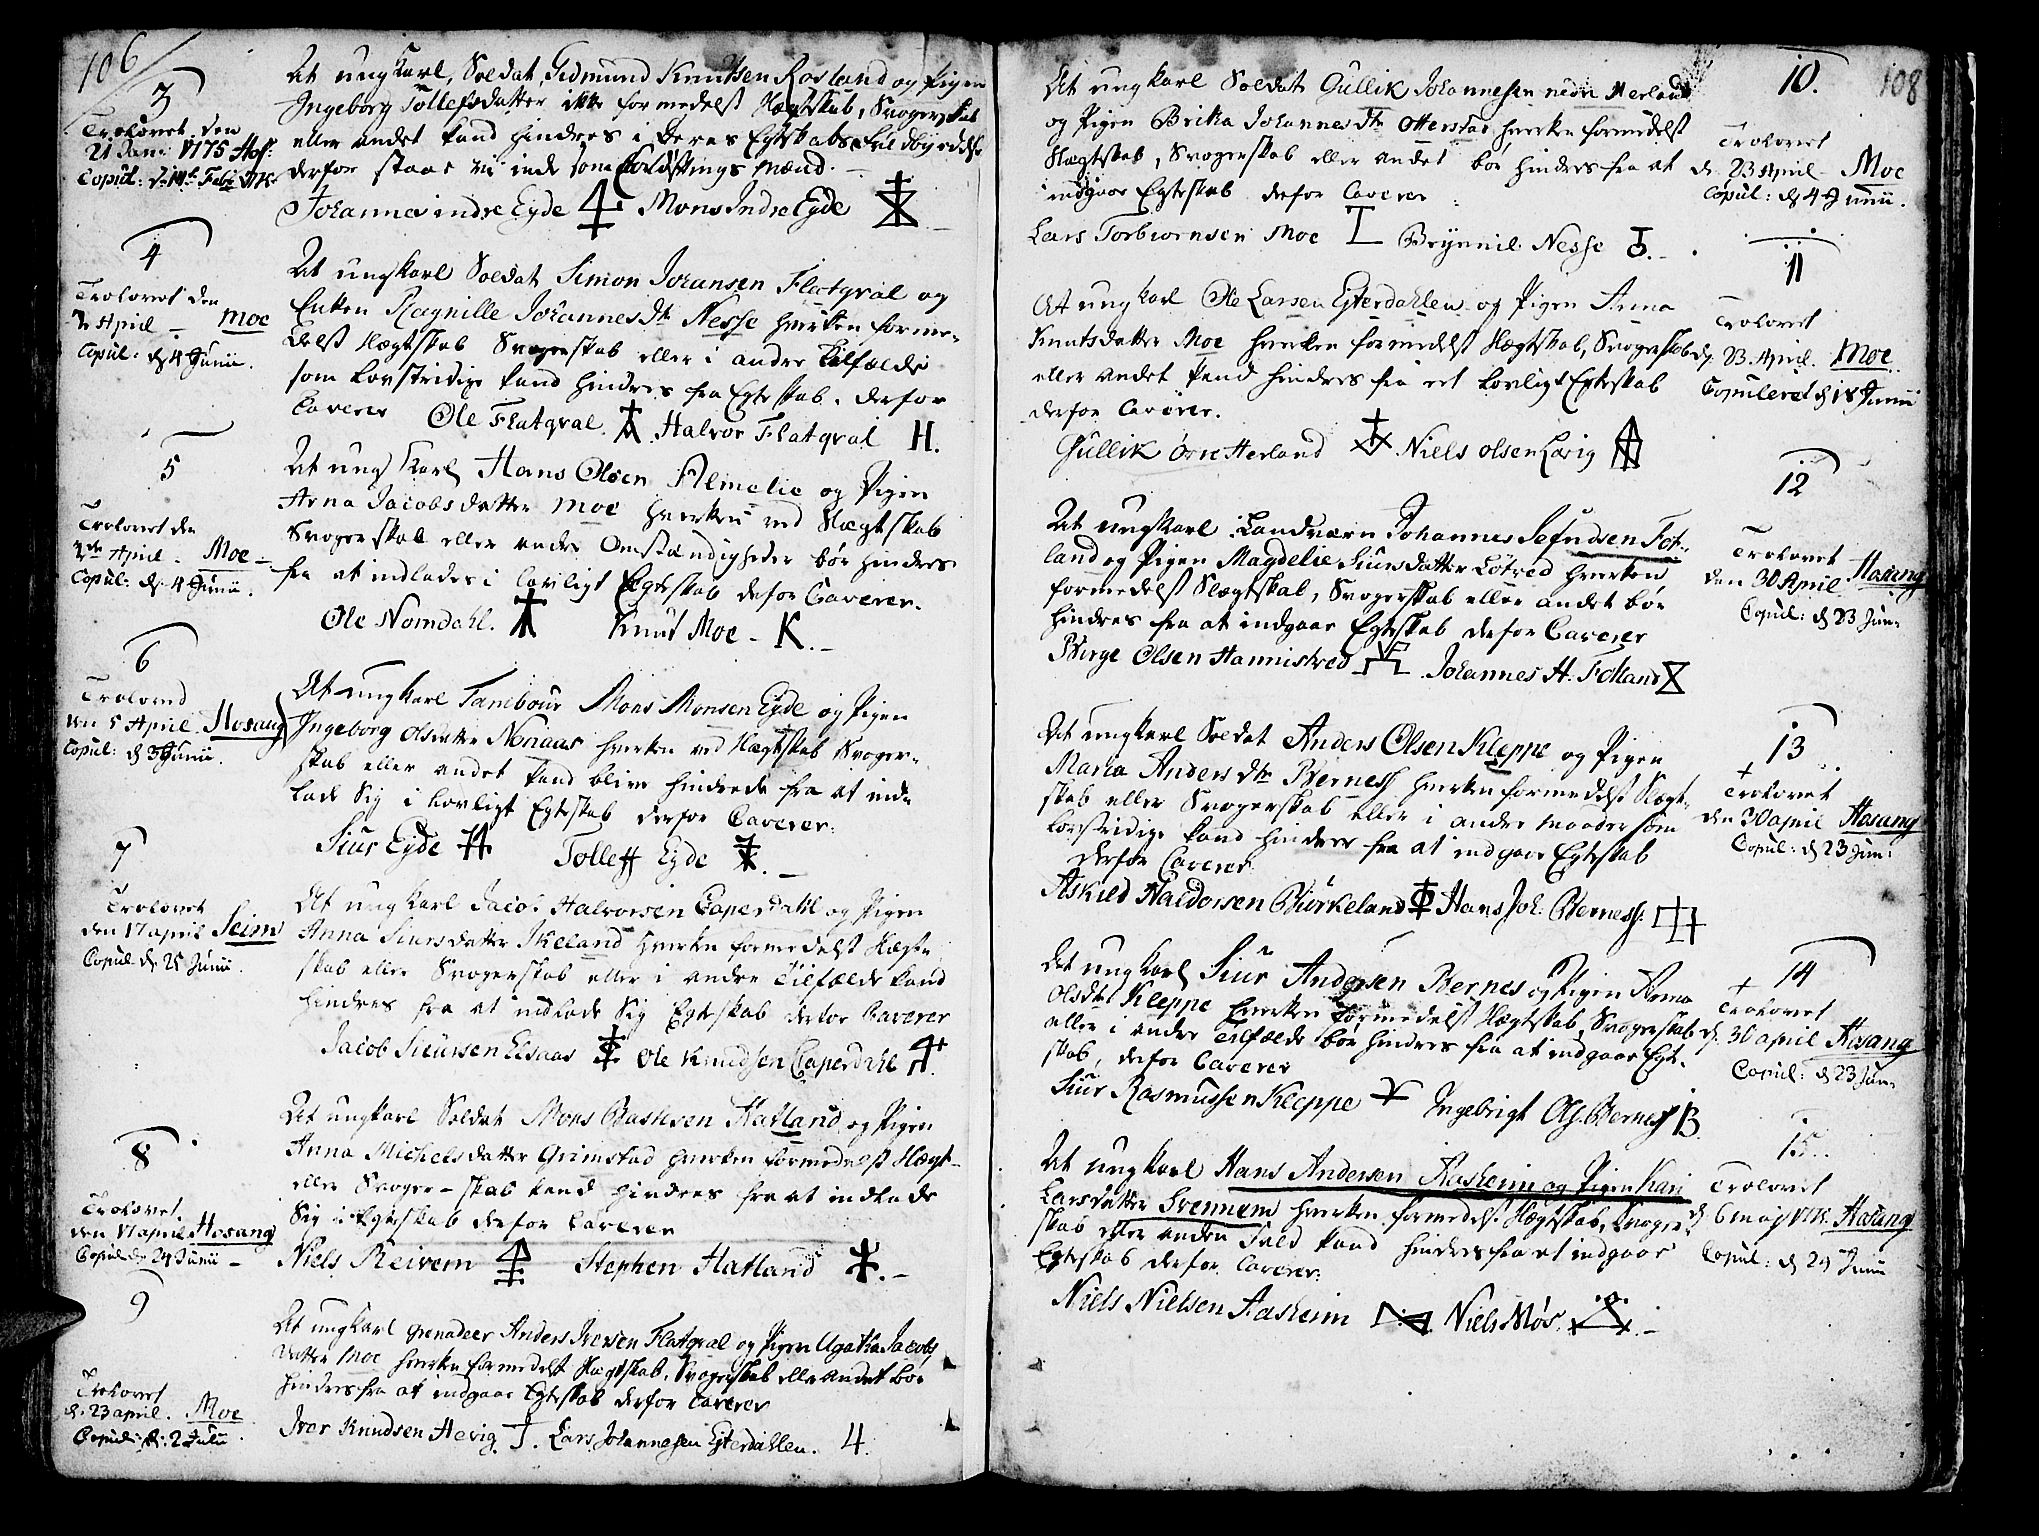 106
3
Trolovet den
21 Jan: 1775 Hos:
Copul:
At ungkarl, Soldat, Gudmund Knutsen Rosland og Pigen
Ingeborg Tollefsdatter ikke formedelst Slægtskab, Svogerskab
eller andet kand hindres i deres Egteskabs fuldbyrdelse
derfor staar vi inde som Forlovnings Mænd.
Johannes indre Eyde Mons Indre Eyde
4
Trolovet den
2 April - Moe
Copul: d 4 Junii.
At ungkarl Soldat Simon Johansen Flatqval og
Enken Ragnille Johannes dtr Nesse hverken forme-
delst Slægtskab Svogerskab eller i andre Tilfælde
som lovstridige kand hindres fra Egteskab. derfor
Caverer Ole Flatqval. Halvor Flatqval H.
5
Trolovet den
2de April. Moe
Copul: d. 4 Junii.
At ungkarl Hans Olsen Almelie og Pigen
Anna Jacobsdatter Moe hverken ved Slægtskab
Svogerskab eller andre Omstændigheder bør hindres
fra at indlades i lovligt Egteskab derfor Caverer.
Ole Nomdahl. Knut Moe - K.
6
Troloved
den 5 April Hosang
Copul: d 3 Junii.
At ungkarl Tambour Mons Monsen Eyde og Pigen
Ingeborg Olsdatter Nonaas hverken ved Slægtskab Svoger-
skab eller andet kand blive hindrede fra at ind-
lade Sig i lovligt Egteskab derfor Caverer:
Siur Eyde Tolleff Eyde
7
Trolovet
den 17 april Seim
Copul d. 25 Junii.
At ungkarl Jacob Halvorsen Caperdahl og Pigen
Anna Siursdatter Ikeland hverken formedelst Slægt-
skab eller Svogerskab eller i andre Tilfælde kand
hindres fra at indlade Sig Egteskab derfor Caverer
Jacob Siursen Elsaas Ole Knudsen Caperdahl
8
Trolovet
den 17 april Hosang
Copul d. 24 Junii -
At ungkarl Soldat Mons Bastesen Hatland og Pigen
Anna Michelsdatter Grimstad hverken formedelst Slægt-
eller Svoger-skab kand hindres fra at indlade
Sig i Egteskab derfor Caverer
Niels Reivem Stephen Hatland
9
Trolovet
d. 23 april. Moe
Copul: d: 2 Julii.
At ungkarl grenadeer Anders Iversen Flatqval og Pigen Agatha Jacobs
datter Moe hverken formedelst Slægtskab, Svogerskab eller andet bør
hindres fra at indgaae Egteskab derfor Caverer
Iver Knudsen Hevig. Lars Johannesen Eyterdahlen.
108
10.
Trolovet
d. 23 April - Moe
Copul: d 4 Junii.
At ungkarl Soldat Gullik Johannesen nedre Herland
og Pigen Brita Johannes dtr Otterstad hverken formedelst
Slægtskab, Svogerskab eller andet bør hindres fra at
indgaae Egteskab derfor Caverer
Lars Torbiørnsen Moe Brynnil Nesse
11
Trolovet
d. 23. April. Moe.
Copuleret d 18 Junii
At ungkarl Ole Larsen Eyterdahlen og Pigen Anna
Knutsdatter Moe hverken formedelst Slægtskab, Svogerskab
eller andet kand hindres fra et lovligt Egteskab
derfor Caverer.
Gullik Øvre Herland Niels Olsen Løvig
12
Trolovet
den 30 April Hosang
Copul: d 23 Jun:
At ungkarl Landværn Johannes Sefudsen Fot-
land og Pigen Magdelie Siursdatter Løtved hverken
formedelst Slægtskab, Svogerskab eller andet bør
hindres fra at indgaae Egteskab derfor Caverer
Birge Olsen Hannisdred Johannes H. Fotland
13
Trolovet
den 30 april Hosang
Copul: d 23 Jun:
At ungkarl Soldat Anders Olsen Kleppe og Pigen
Maria Anders dtr Berness hverken formedelst Slægt-
skab eller Svogerskab eller i andre maader som
lovstridige kand hindres fra at indgaae Egteskab
derfor Caverer
Askild Haldorsen Biørkeland Hans Joh: Berness:
14
Trolovet
d. 30 april Hosang
Copul: d 23 Jun:
At ungkarl Siur Andersen Bernes og Pigen Anna
Olsdtr Kleppe hverken formedelst Slægtskab, Svogerskab
eller i andre Tilfælde bør hindres fra at indgaae Egte-
skab, derfor Caverer
Siur Rasmussen Kleppe Ingebrigt Ols. Berness B.
15.
Trolovet
d 6 maj Hosang
Copul: d 29 Junii
At ungkarl Hans Andersen Aasheim og Pigen Kari
Larsdatter Svennem hverken formedelst Slægtskab, Svoger-
skab eller anden Fald kand hindres fra at indgaae
Egteskab derfor Caverer:
Niels Nielsen Aasheim Niels Møs.